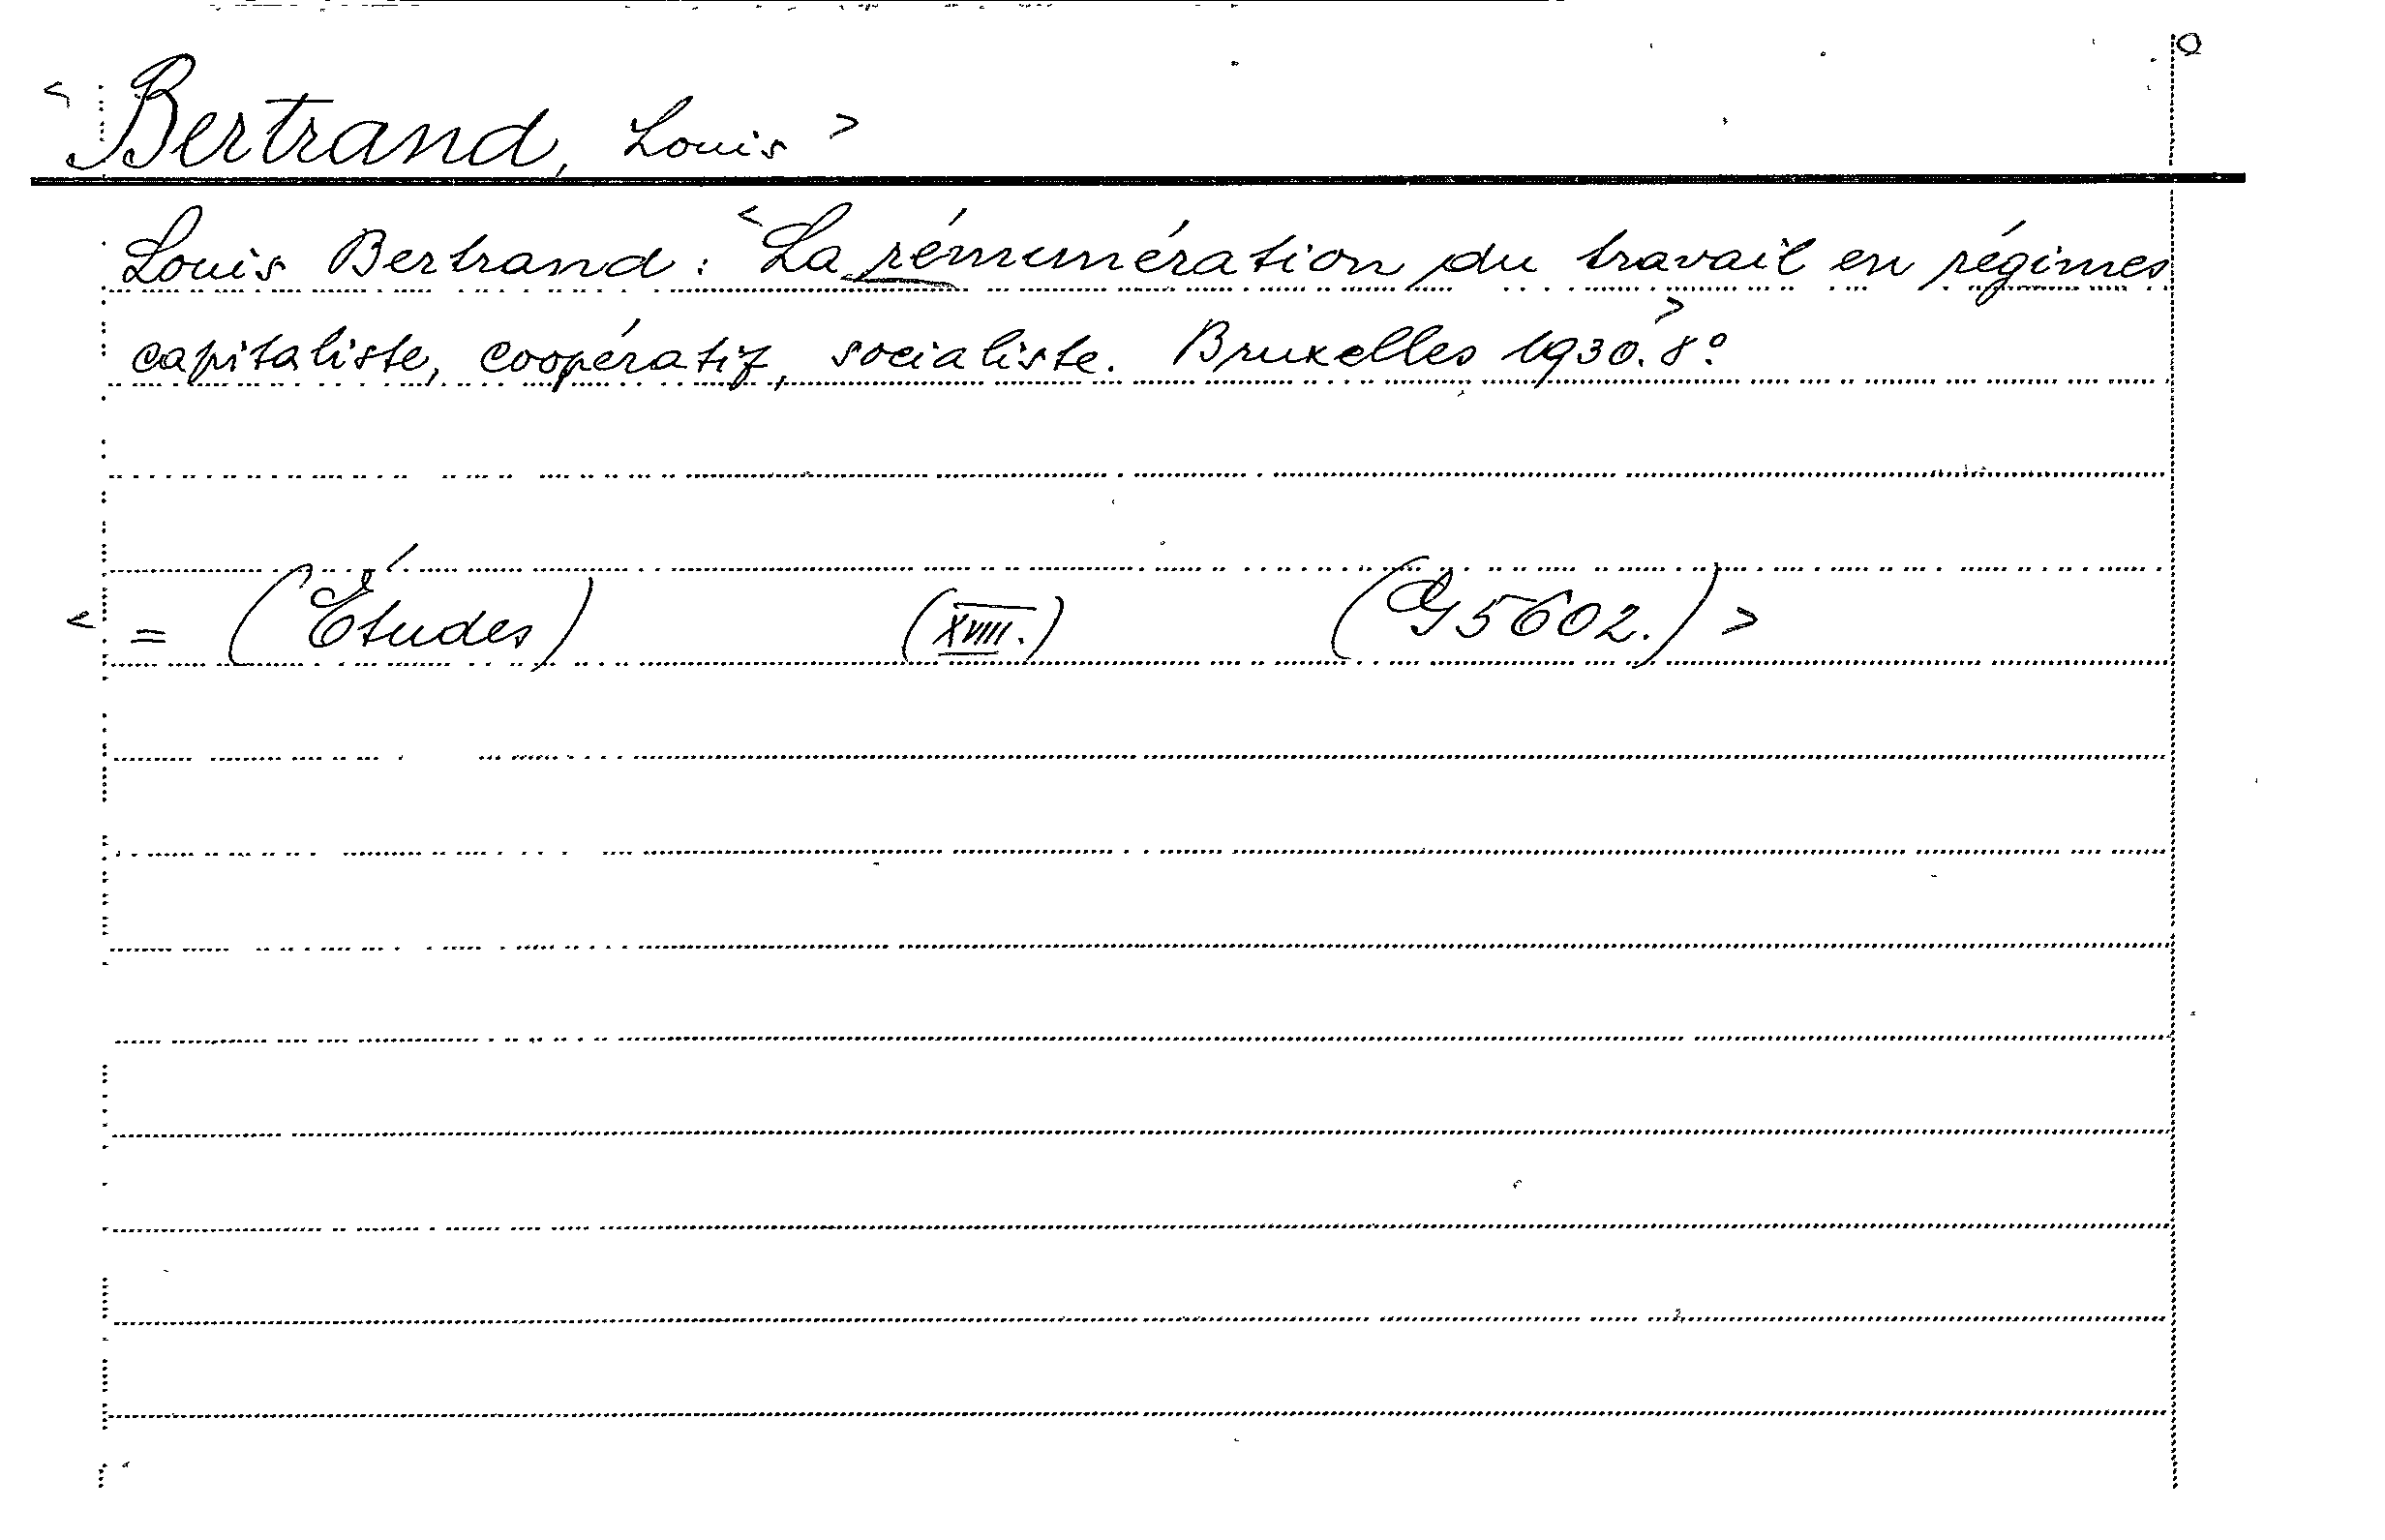 <Bertrand, Louis>
Louis Bertrand: <La rémunération du travail en régimes
capitaliste, coopératif, socialiste. Bruxelles 1930.> 8°
<= (Études) (XVIII.) (G 5602.)>